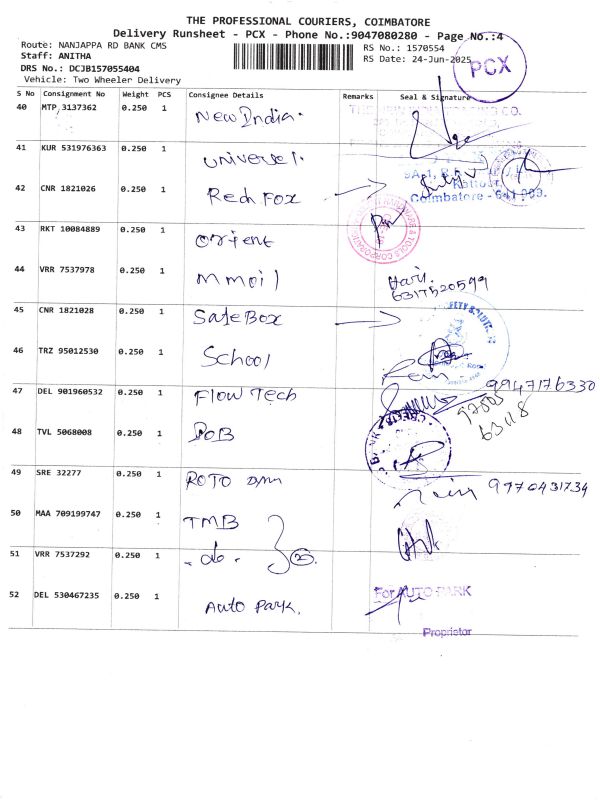 THE PROFESSIONAL COURIERS, COIMBATORE
Delivery Runsheet - PCX - Phone No.:9047080280 - Page No.:4
Route: NANJAPPA RD BANK CMS
RS No.: 1570554
Staff: ANITHA
RS Date: 24-Jun-2025
DRS No.: DCJB157055404
PCX
Vehicle: Two Wheeler Delivery
S No Consignment No Weight PCS Consignee Details Remarks Seal & Signature
40 MTP 3137362 0.250 1 New India.
41 KUR 531976363 0.250 1 Universel.
42 CNR 1821026 0.250 1 Red Fox →
Coimbatore - 641
43 RKT 10084889 0.250 1 Orient
44 VRR 7537978 0.250 1 mmoil Hari.
6317520599
45 CNR 1821028 0.250 1 Safe Box →
46 TRZ 95012530 0.250 1 School
47 DEL 901960532 0.250 1 Flow Tech 9947176330
48 TVL 5068008 0.250 1 BOB
63118
49 SRE 32277 0.250 1 ROTO 9770431734
50 MAA 709199747 0.250 1 TMB
51 VRR 7537292 0.250 1 - do - 2
52 DEL 530467235 0.250 1 Auto Park.
For AUTO PARK
Proprietor